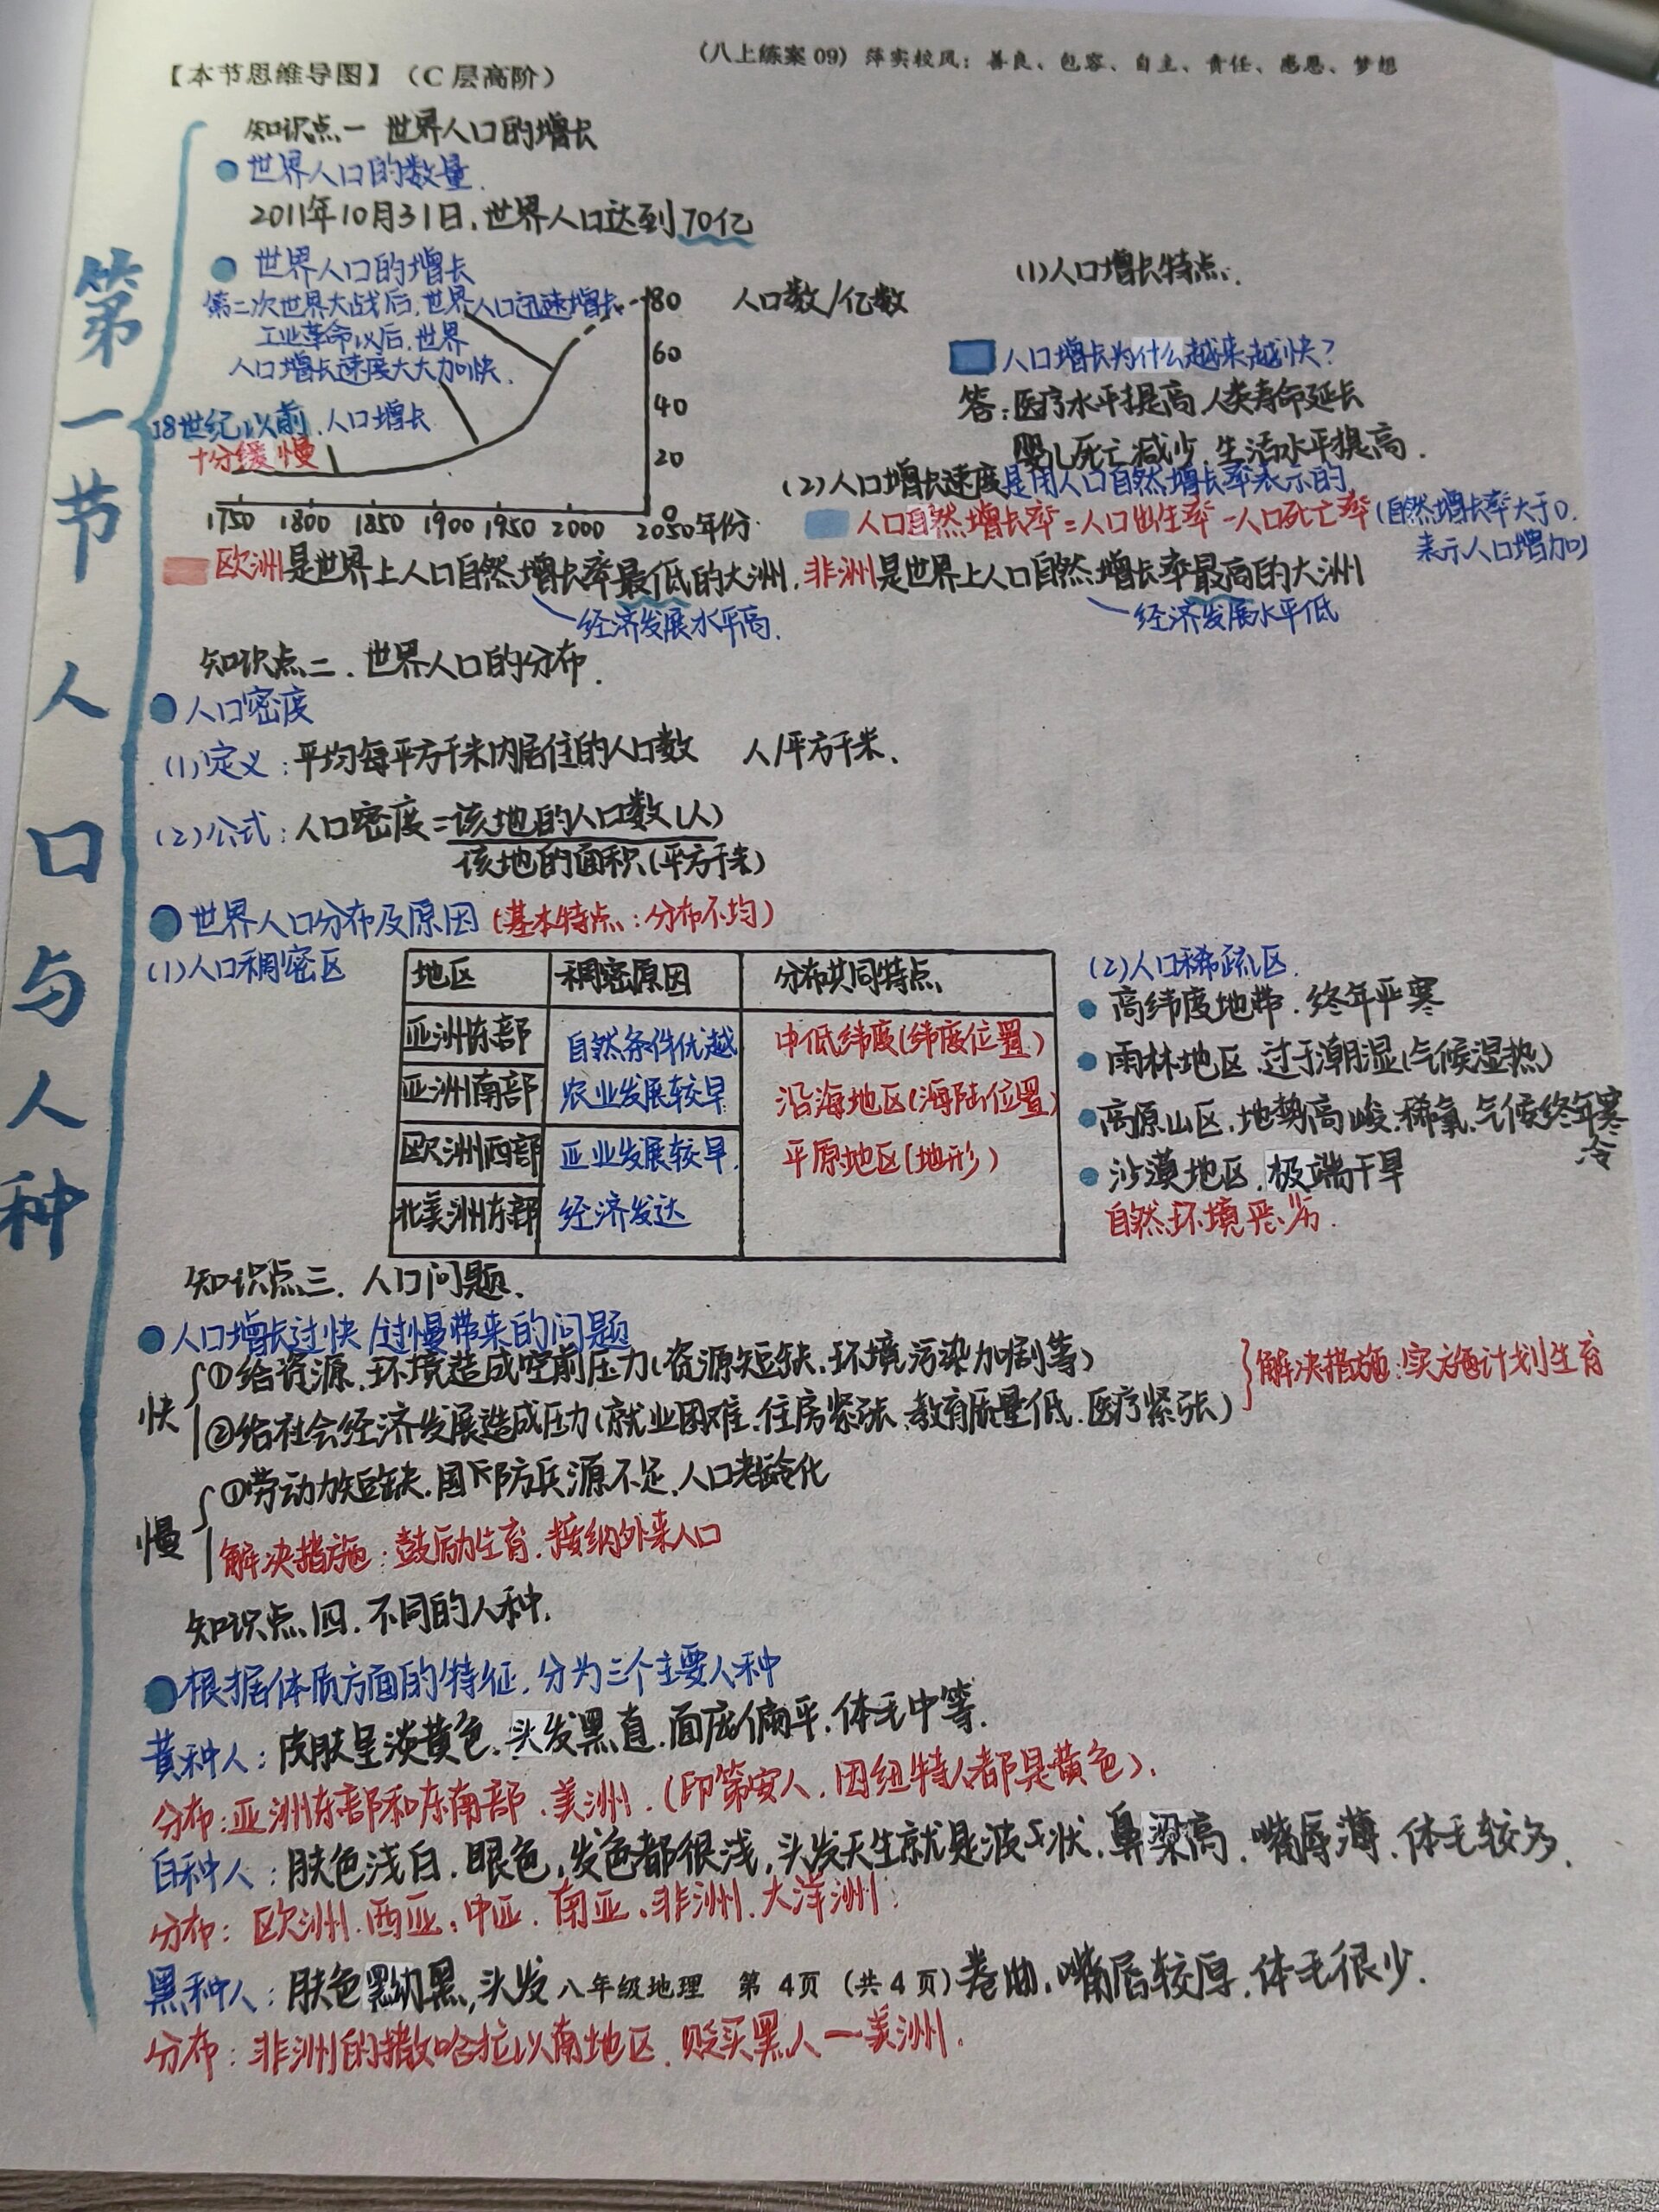 (八上练案09) 萍实校风：善良、包容、自主、责任、感恩、梦想
【本节思维导图】(C层高阶)
第一节 人口与人种
知识点一 世界人口的增长
世界人口的数量.
2011年10月31日,世界人口达到70亿
世界人口的增长
(1)人口增长特点:
第二次世界大战后,世界人口迅速增长
工业革命以后,世界
人口增长速度大大加快.
18世纪以前,人口增长
十分缓慢
80 人口数/亿数
60
40
20
0
1750 1800 1850 1900 1950 2000 2050年份.
人口增长为什么越来越快?
答:医疗水平提高,人类寿命延长
婴儿死亡减少,生活水平提高.
(2)人口增长速度是用人口自然增长率表示的
人口自然增长率=人口出生率-人口死亡率(自然增长率大于0.
表示人口增加)
欧洲是世界上人口自然增长率最低的大洲,非洲是世界上人口自然增长率最高的大洲
经济发展水平高. 经济发展水平低
知识点二.世界人口的分布.
人口密度
(1)定义:平均每平方千米内居住的人口数 人/平方千米、
(2)公式:人口密度=该地的人口数(人)
该地的面积(平方千米)
世界人口分布及原因(基本特点:分布不均)
(1)人口稠密区
地区 稠密原因 分布共同特点
亚洲东部 自然条件优越 中低纬度(纬度位置)
亚洲南部 农业发展较早 沿海地区(海陆位置)
欧洲西部 亚业发展较早. 平原地区(地形)
北美洲东部 经济发达
(2)人口稀疏区.
高纬度地带.终年严寒
雨林地区,过于潮湿(气候湿热)
高原山区,地势高峻.稀氧.气候终年寒
冷
沙漠地区,极端干旱
自然环境恶劣.
知识点三.人口问题.
人口增长过快/过慢带来的问题
快 ①给资源、环境造成空前压力(资源短缺.环境污染加剧等)
②给社会经济发展造成压力(就业困难.住房紧张.教育质量低.医疗紧张)
解决措施:实施计划生育
慢 ①劳动力短缺.国防兵源不足.人口老龄化
解决措施:鼓励生育.接纳外来人口
知识点四.不同的人种.
根据体质方面的特征,分为三个主要人种
黄种人:皮肤呈淡黄色.头发黑直.面庞偏平.体毛中等.
分布:亚洲东部和东南部.美洲.(印第安人.因纽特人都是黄色).
白种人:肤色浅白.眼色,发色都很浅,头发天生就是波状.鼻梁高.嘴唇薄.体毛较多.
分布:欧洲.西亚.中亚.南亚.非洲.大洋洲.
黑种人:肤色黝黑,头发 卷曲.嘴唇较厚.体毛很少.
八年级地理 第4页 (共4页)
分布:非洲的撒哈拉以南地区.贩买黑人—美洲.